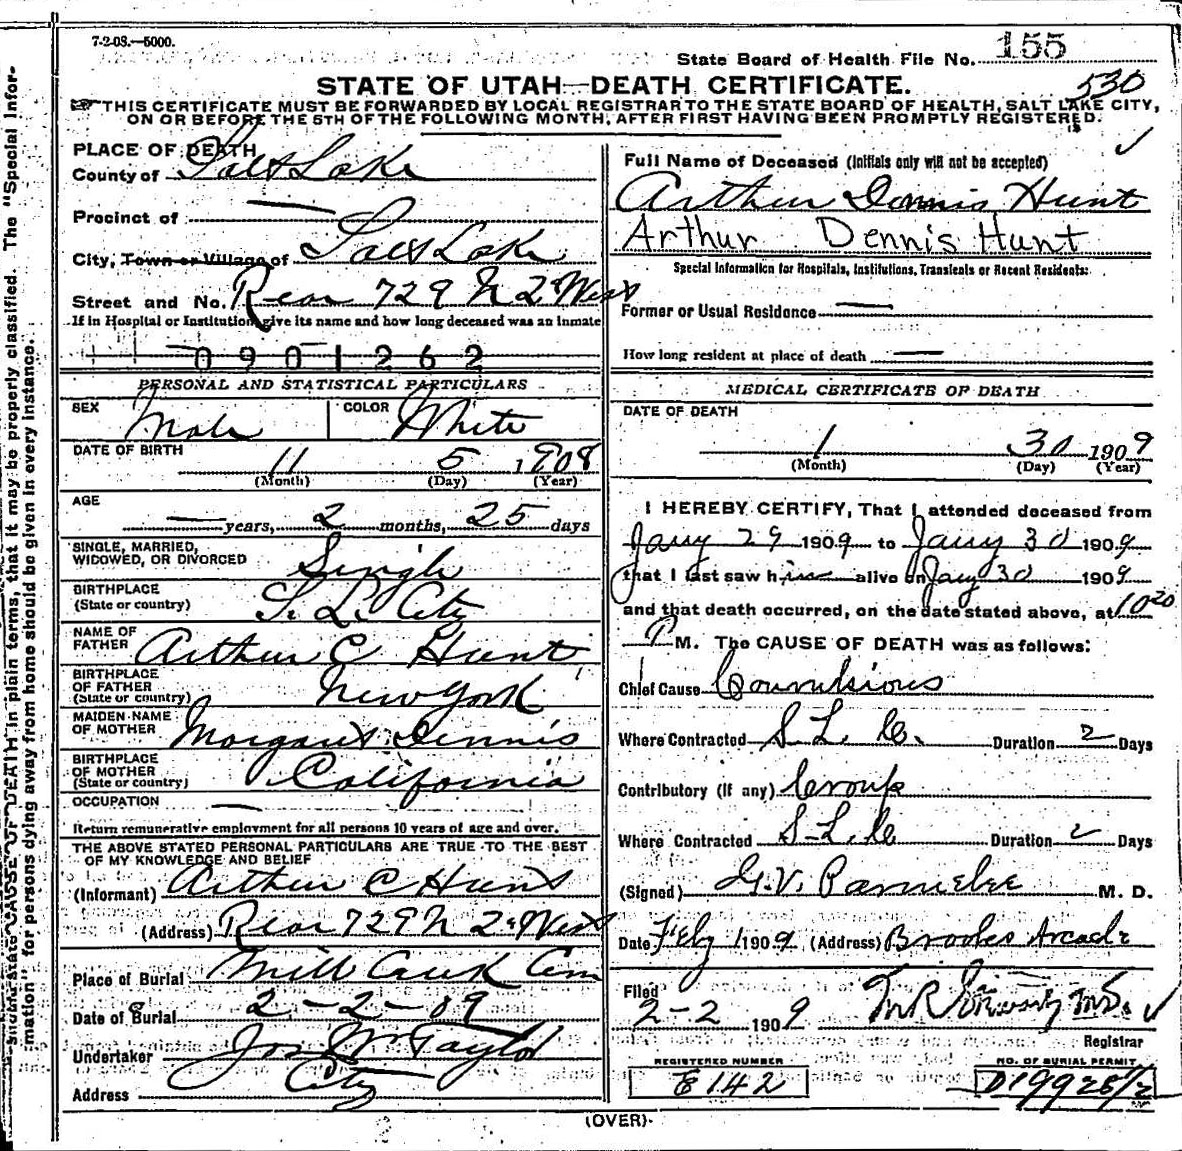 7-2-08.—5000.
State Board of Health File No. 155
STATE OF UTAH—DEATH CERTIFICATE.
530
THIS CERTIFICATE MUST BE FORWARDED BY LOCAL REGISTRAR TO THE STATE BOARD OF HEALTH, SALT LAKE CITY,
ON OR BEFORE THE 5TH OF THE FOLLOWING MONTH, AFTER FIRST HAVING BEEN PROMPTLY REGISTERED.
PLACE OF DEATH
County of Salt Lake
Precinct of —
City, Town or Village of Salt Lake
Street and No. Rear 729 N 2d West
If in Hospital or Institution, give its name and how long deceased was an inmate
0901262
PERSONAL AND STATISTICAL PARTICULARS
SEX Male COLOR White
DATE OF BIRTH 11 5 1908
(Month) (Day) (Year)
AGE
— years, 2 months, 25 days
SINGLE, MARRIED,
WIDOWED, OR DIVORCED Single
BIRTHPLACE
(State or country) S. L. City
NAME OF
FATHER Arthur C Hunt
BIRTHPLACE
OF FATHER
(State or country) New York
MAIDEN NAME
OF MOTHER Margaret Dennis
BIRTHPLACE
OF MOTHER
(State or country) California
OCCUPATION —
Return remunerative employment for all persons 10 years of age and over.
THE ABOVE STATED PERSONAL PARTICULARS ARE TRUE TO THE BEST
OF MY KNOWLEDGE AND BELIEF
(Informant) Arthur C Hunt
(Address) Rear 729 N 2d West
Place of Burial Mill Creek Cem
Date of Burial 2-2-09
Undertaker Jos Wm Taylor
Address City
Full Name of Deceased (Initials only will not be accepted)
Arthur Dennis Hunt
Arthur Dennis Hunt
Special Information for Hospitals, Institutions, Transients or Recent Residents:
Former or Usual Residence —
How long resident at place of death —
MEDICAL CERTIFICATE OF DEATH
DATE OF DEATH
1 30 1909
(Month) (Day) (Year)
I HEREBY CERTIFY, That I attended deceased from
Jany 29 1909 to Jany 30 1909
that I last saw him alive on Jany 30 1909
and that death occurred, on the date stated above, at 10 20
P M. The CAUSE OF DEATH was as follows:
Chief Cause Convulsions
Where Contracted S. L. C. Duration 2 Days
Contributory (if any) Croup
Where Contracted S-L.C Duration 2 Days
(Signed) G. V. Parmelee M. D.
Date Feby 1 1909 (Address) Brooks Arcade
Filed
2-2 1909
Registrar
REGISTERED NUMBER
E 142
NO. OF BURIAL PERMIT
D19928 1/2
(OVER)
mation" for persons dying away from home should be given in every instance.
should state CAUSE OF DEATH in plain terms, that it may be properly classified. The "Special Infor-